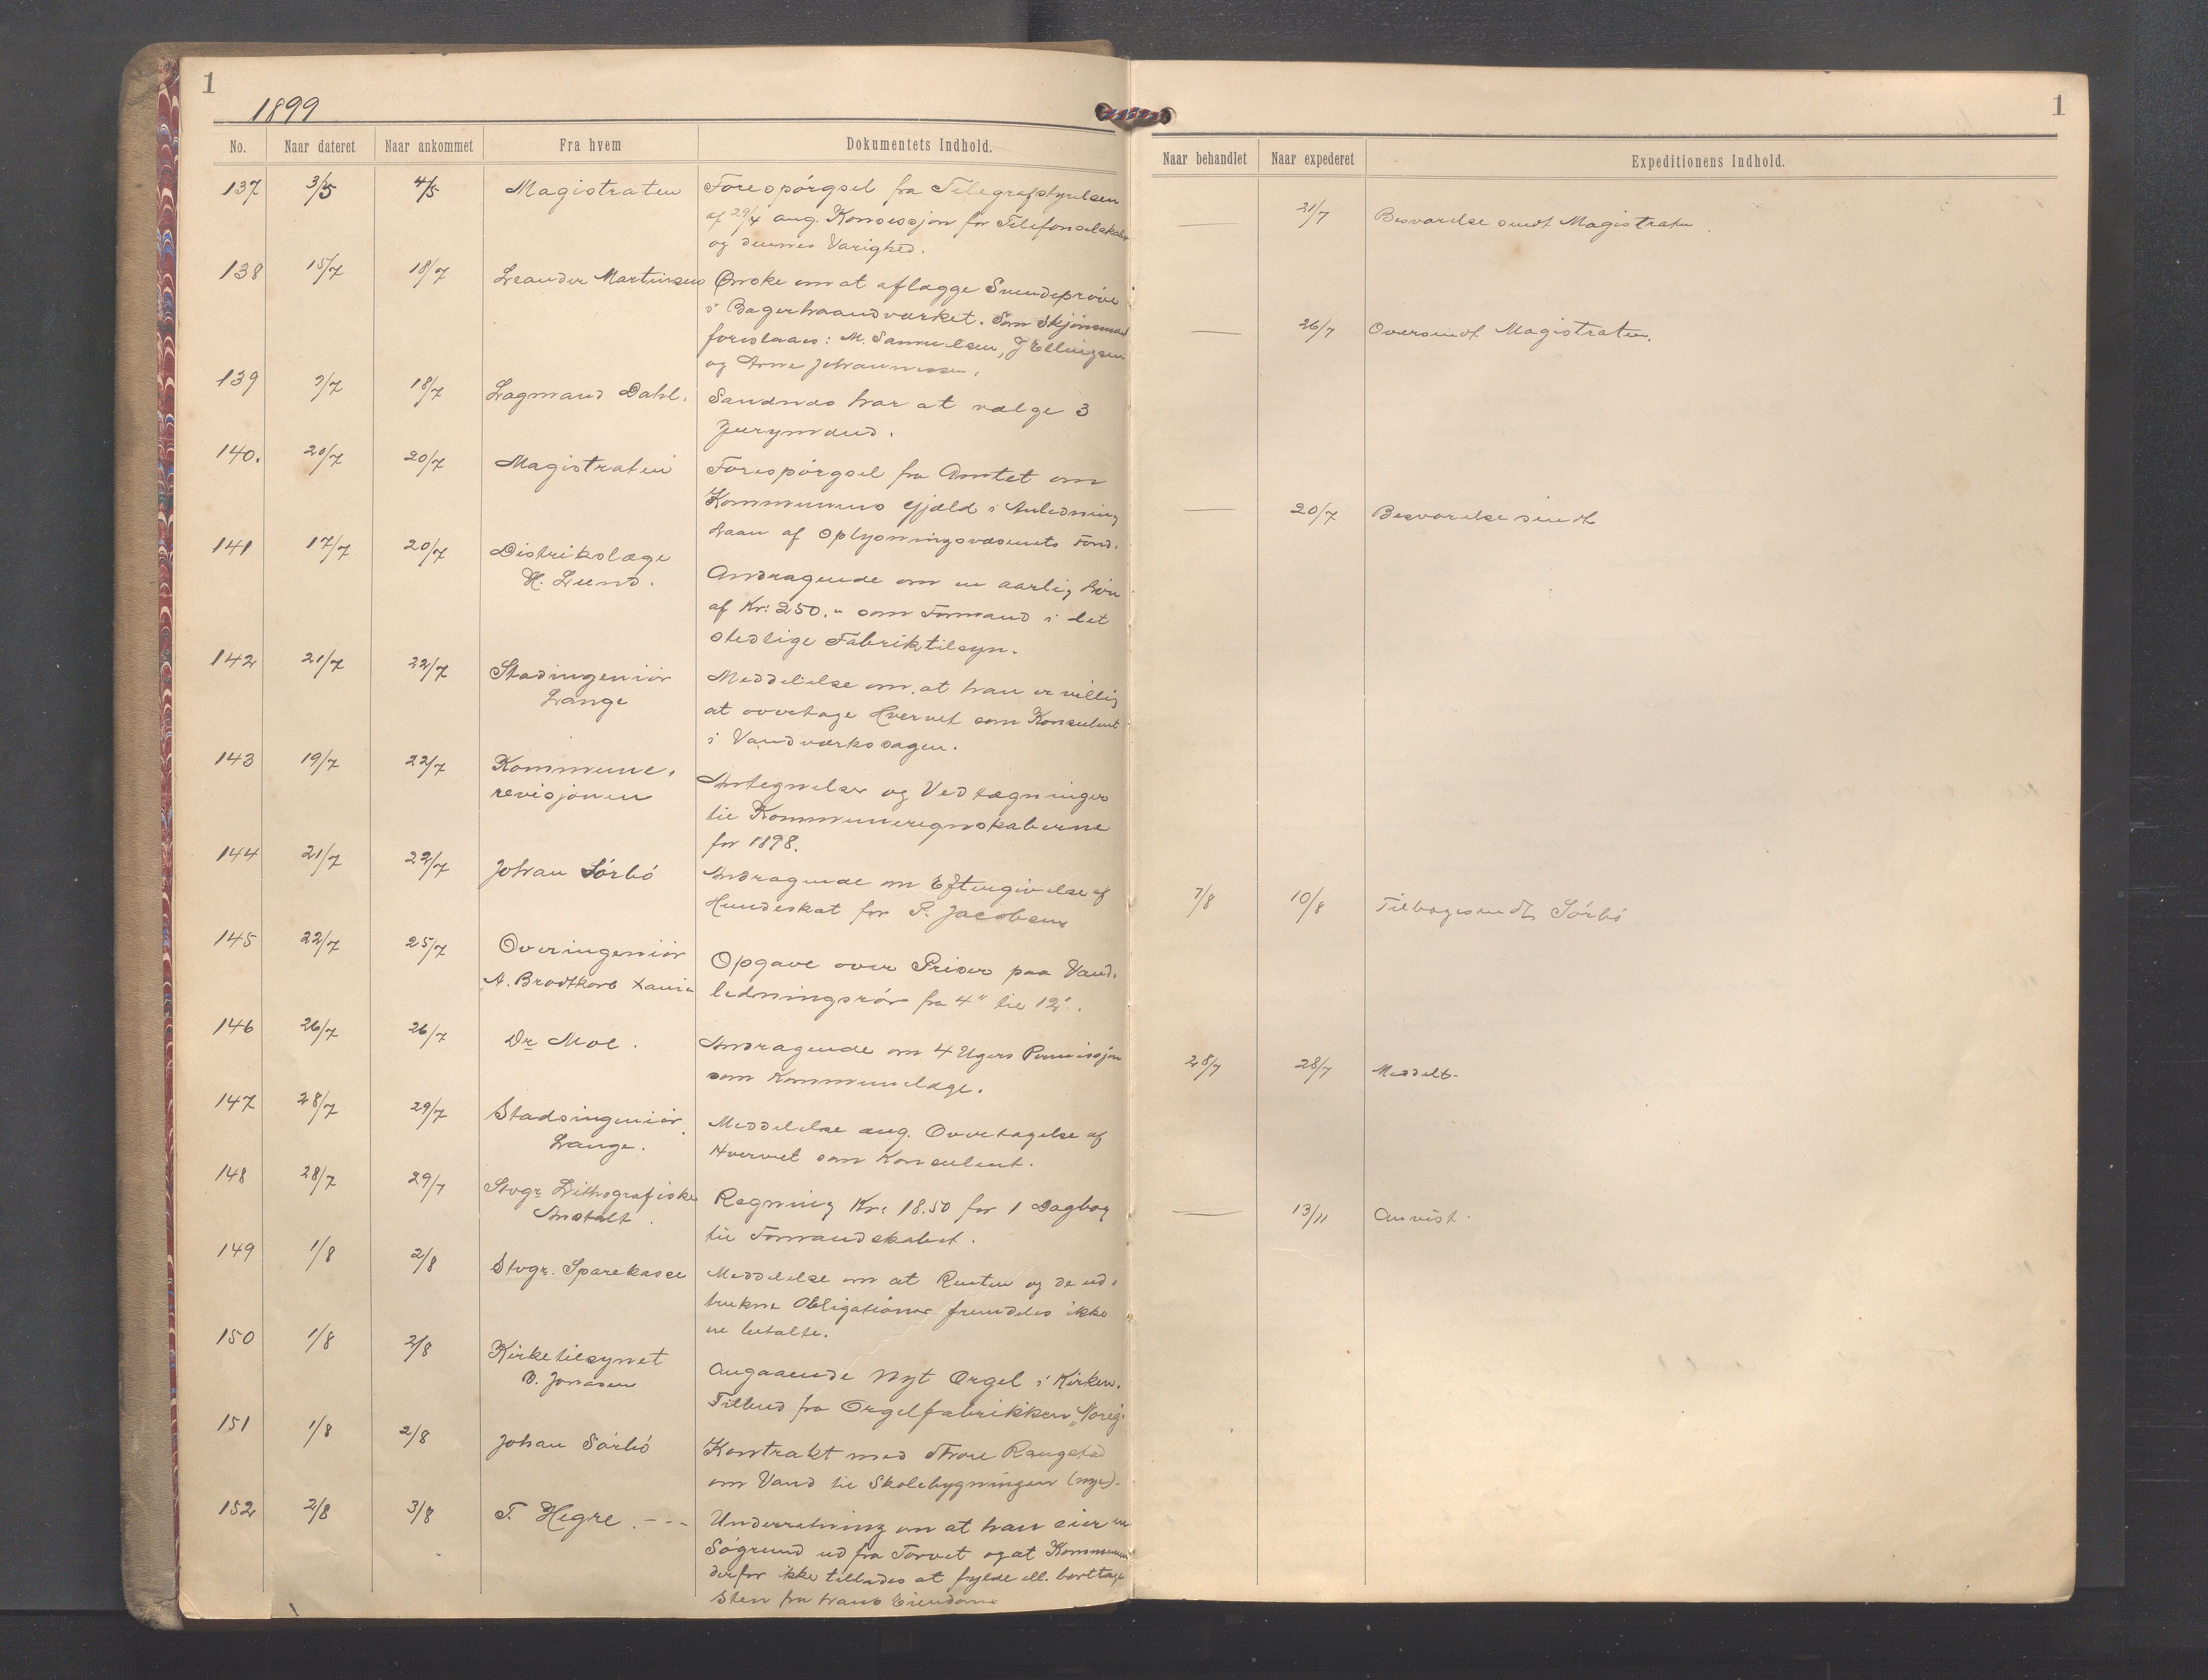 1
1899
No. Naar dateret Naar ankommet Fra hvem Dokumentets Indhold.
137 3/5 4/5 Magistraten Forespörgsel fra Telegrafstyrelsen
af 29/4 ang. Konsessjon for Telefonselskab
og dennes Varighed.
138 15/7 18/7 Leander Martinsen Önske om at aflægge Svendepröve
i Bagerhaandværket. Som Skjönsmænd
foreslaaes: M. Samuelsen, J Ellingsen
og Arne Johannessen.
139 9/7 18/7 Lagmand Dahl. Sandnæs har at vælge 3
Jurymænd.
140. 20/7 20/7 Magistraten Forespörgsel fra Amtet om
Kommunens Gjæld i Anledning
Laan af Oplysningsvæsenets Fond.
141 17/7 20/7 Distrikslæge
H. Lund.
Andragende om en aarlig Lön
af Kr: 250.- som Formand i det
stedlige Fabriktilsyn.
142 21/7 22/7 Stadingeniör
Lange
Meddelelse om at han er villig
at overtage Hvervet som Konsulent
i Vandværkssagen.
143 19/7 22/7 Kommune-
revisjonen
Antegnelser og Vedtægninger
til Kommuneregnskaberne
for 1898.
144 21/7 22/7 Johan Sörbö Andragende om Eftergivelse af
Hundeskat for P. Jacobsen
145 22/7 25/7 Overingeniör
A. Brodtkorb Xania
Opgave over Priser paa Vand-
ledningsrör fra 4" til 12".
146 26/7 26/7 Dr Moe. Andragende om 4 Ugers Permissjon
som Kommunelæge.
147 28/7 29/7 Stadsingeniör
Lange.
Meddelelse ang. Overtagelse af
Hvervet som Konsulent.
148 28/7 29/7 Stvgr Lithografiske
Anstalt.
Regning Kr: 18.50 for 1 Dagbog
til Formandskabet.
149 1/8 2/8 Stvgr. Sparekasse Meddelelse om at Renten og de ud-
trukne Obligationer fremdeles ikke
er betalte.
150 1/8 2/8 Kirketilsynet
B. Jonasen
Angaaende Nyt Orgel i Kirken.
Tilbud fra Orgelfabrikken „Noreg"
151 1/8 2/8 Johan Sörbö Kontrakt med Thore Raugstad
om Vand til Skolebygningen (nye).
152 2/8 3/8 T. Hegre. --- Underretning om at han eier en
Sögrund ud fra Torvet og at Kommunen
derfor ikke tillades at fylde ell. borttage
Sten fra hans Eiendom
1
Naar behandlet Naar expederet Expeditionens Indhold.
— 21/7 Besvarelse sendt Magistraten.
— 26/7 Oversendt Magistraten.
— 20/7 Besvarelse sendt
7/8 10/8 Tilbagesendt Sörbö
28/7 28/7 Meddelt.
— 13/11 Anvist.